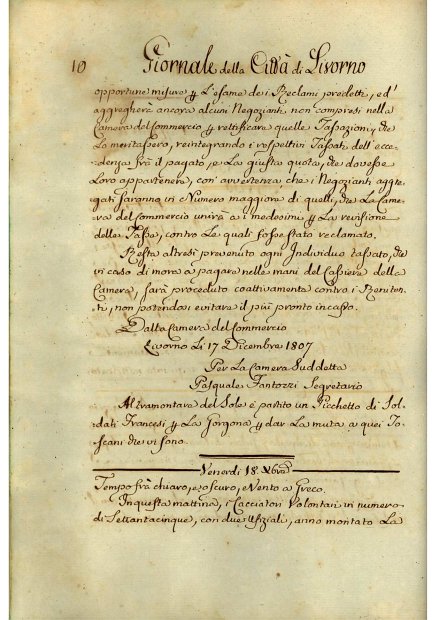 10 Giornale della Città di Livorno
opportune misure p l'esame dei Reclami predetti, ed'
aggregherà ancora alcuni Negozianti non compresi nella
Camera del Commercio p rettificare quelle Tassazioni, che
lo meritassero, reintegrando i rispettivi Tassati dell'ecce-
denza frà il pagato, e la giusta quota, che dovesse
loro appartenere, con avvertenza, che i Negozianti aggre-
gati saranno in Numero maggiore di quelli, che la Came-
ra del Commercio unirà a i medesimi p la revisione
delle Tasse, contro le quali fosse stato reclamato.
Resta altresì prevenuto ogni Individuo tassato, che
in caso di mora a pagare nelle mani del Cassiere della
Camera, sarà proceduto coattivamente contro i Reniten-
ti, non potendosi evitare il più pronto incasso.
Dalla Camera del Commercio
Livorno li 17 Dicembre 1807
Per la Camera Suddetta
Pasquale Fantozzi Segretario
Al tramontare del Sole è partito un Picchetto di Sol-
dati Francesi p la Gorgona p dar la muta a quei To-
scani che vi sono.
Venerdì 18. Xbre
Tempo frà chiaro, e oscuro, e Vento a Greco.
In questa mattina, i Cacciatori Volontari in numero
di Settantacinque, con due Ufiziali, anno montato la